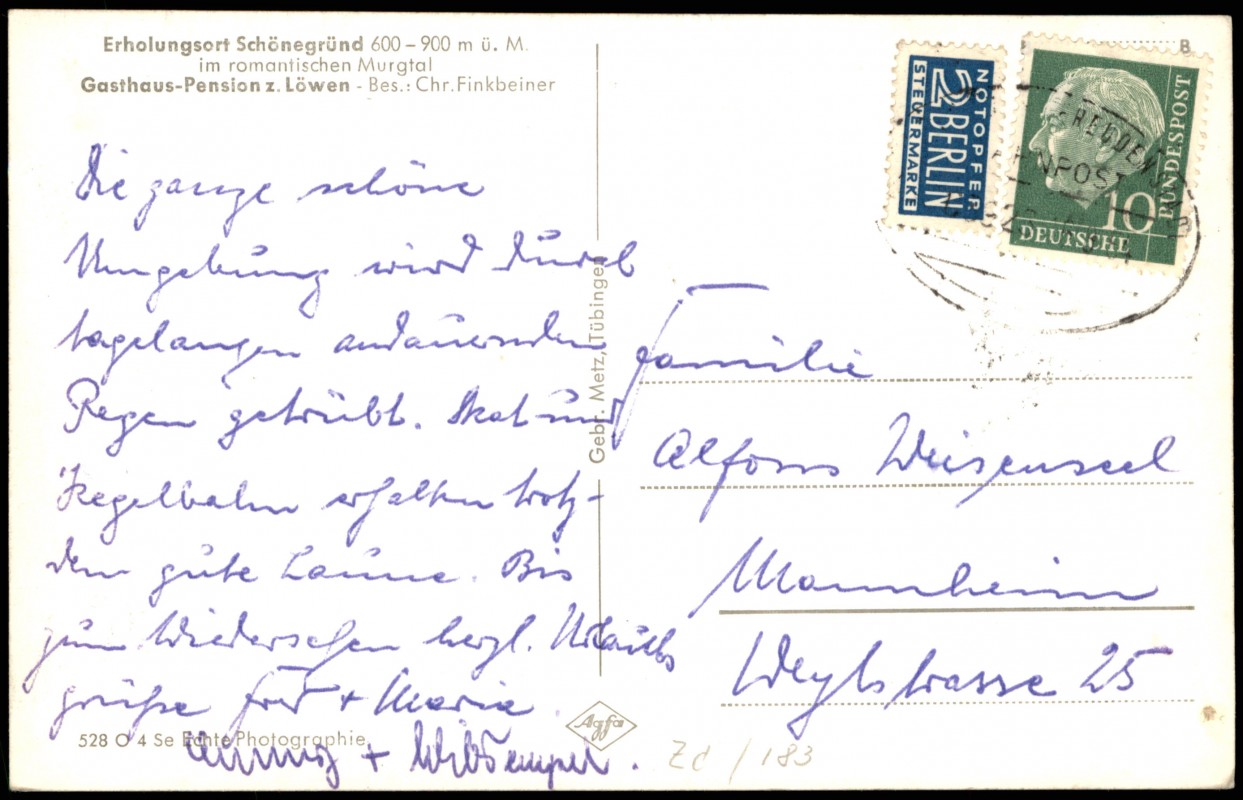 Erholungsort Schönegründ 600 – 900 m ü. M.
im romantischen Murgtal
Gasthaus-Pension z. Löwen - Bes.: Chr. Finkbeiner
Die ganze schöne
Umgebung wird durch
tagelangen andauernden
Regen getrübt. Skat und
Kegelbahn erhalten trotz-
dem gute Laune. Bis
zum Wiedersehen herzl. Urlaubs
grüße + Maria
+
528 O 4 Se Echte Photographie
Gebr. Metz, Tübingen
Agfa
NOTOPFER
2 BERLIN
STEUERMARKE
B
DEUTSCHE
BUNDESPOST
10
Familie
Alfons Weisenseel
Mannheim
Weylstrasse 25
Zd / 183